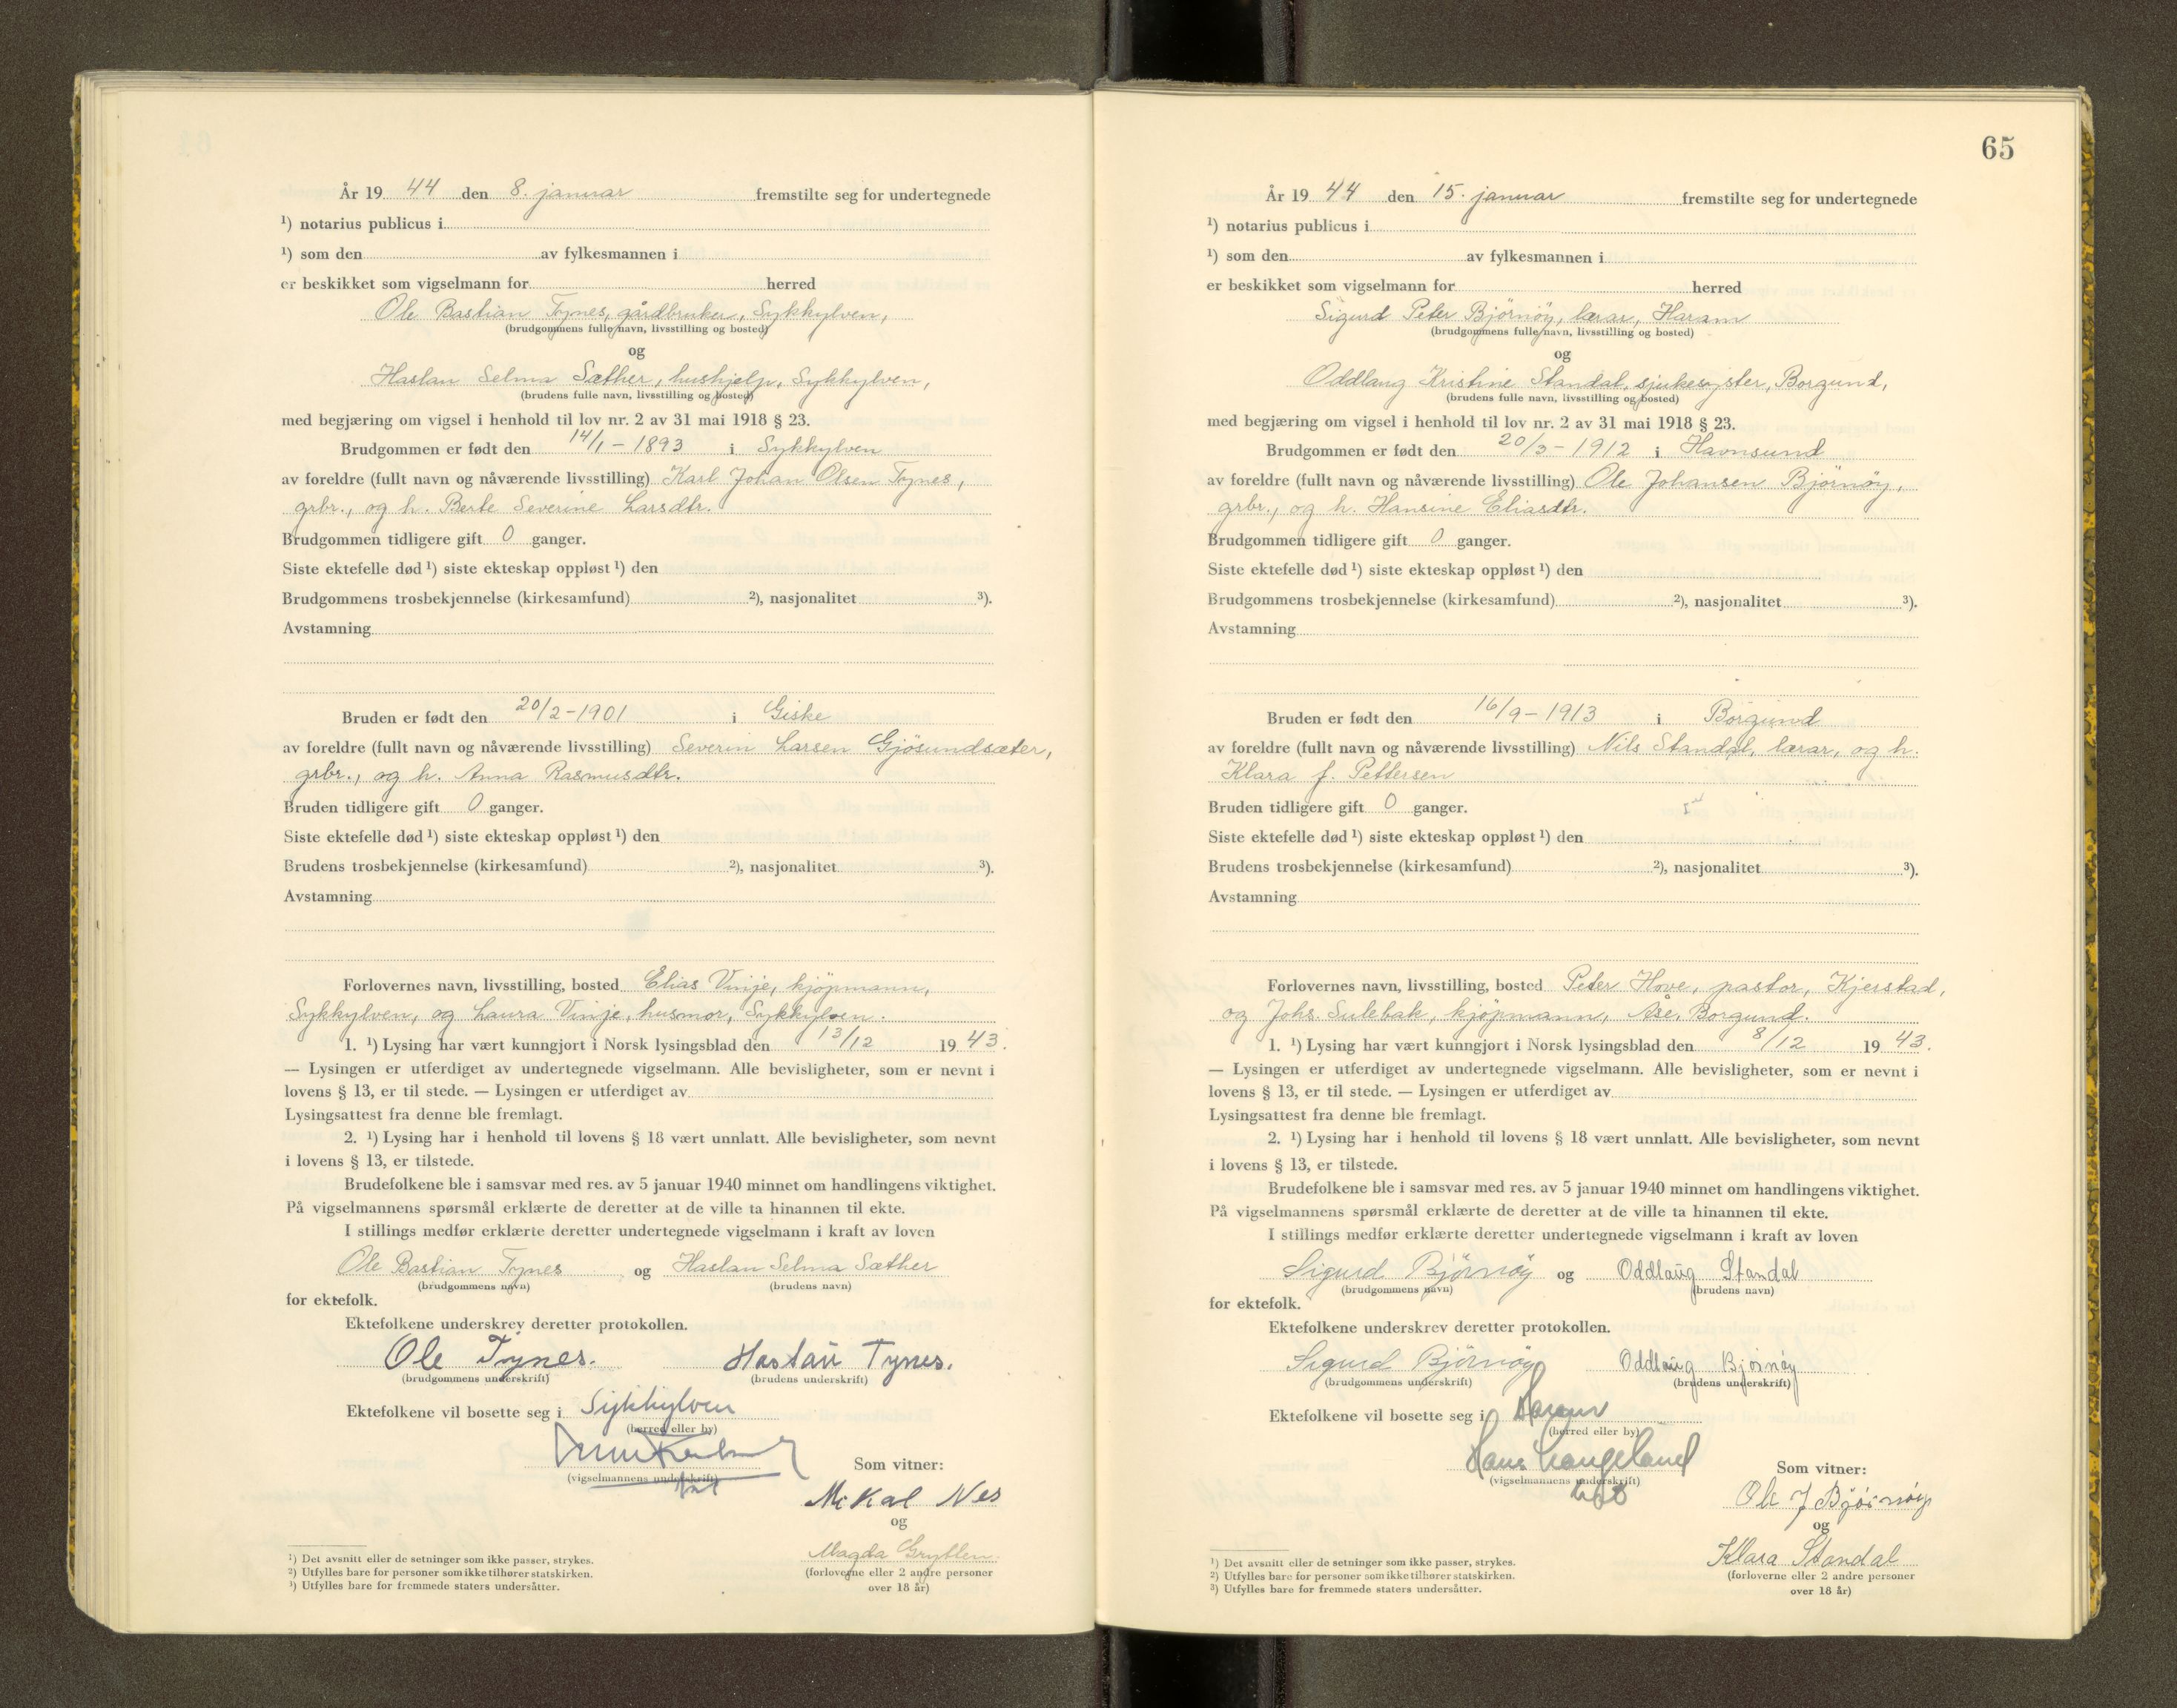 År 19 44 den 8. januar fremstilte seg for undertegnede
¹) notarius publicus i
¹) som den av fylkesmannen i
er beskikket som vigselmann for herred
Ole Bastian Tynes, gårdbruker, Sykkylven,
(brudgommens fulle navn, livsstilling og bosted)
og
Hastan Selma Sæther, hushjelp, Sykkylven,
(brudens fulle navn, livsstilling og bosted)
med begjæring om vigsel i henhold til lov nr. 2 av 31 mai 1918 § 23.
Brudgommen er født den 14/1 - 1893 i Sykkylven
av foreldre (fullt navn og nåværende livsstilling) Karl Johan Olsen Tynes,
grbr., og h. Berte Severine Larsdtr.
Brudgommen tidligere gift 0 ganger.
Siste ektefelle død ¹) siste ekteskap oppløst ¹) den
Brudgommens trosbekjennelse (kirkesamfund) ²), nasjonalitet ³).
Avstamning
Bruden er født den 20/2 - 1901 i Giske
av foreldre (fullt navn og nåværende livsstilling) Severin Larsen Gjösundsæter,
grbr., og h. Anna Rasmusdtr.
Bruden tidligere gift 0 ganger.
Siste ektefelle død ¹) siste ekteskap oppløst ¹) den
Brudens trosbekjennelse (kirkesamfund) ²), nasjonalitet ³).
Avstamning
Forlovernes navn, livsstilling, bosted Elias Vinje, kjöpmann,
Sykkylven, og Laura Vinje, husmor, Sykkylven.
1. ¹) Lysing har vært kunngjort i Norsk lysingsblad den 13/12 19 43.
— Lysingen er utferdiget av undertegnede vigselmann. Alle bevisligheter, som er nevnt i
lovens § 13, er til stede. — Lysingen er utferdiget av
Lysingsattest fra denne ble fremlagt.
2. ¹) Lysing har i henhold til lovens § 18 vært unnlatt. Alle bevisligheter, som nevnt
i lovens § 13, er tilstede.
Brudefolkene ble i samsvar med res. av 5 januar 1940 minnet om handlingens viktighet.
På vigselmannens spørsmål erklærte de deretter at de ville ta hinannen til ekte.
I stillings medfør erklærte deretter undertegnede vigselmann i kraft av loven
Ole Bastian Tynes og Hastan Selma Sæther
(brudgommens navn) (brudens navn)
for ektefolk.
Ektefolkene underskrev deretter protokollen.
Ole Tynes. Hastan Tynes.
(brudgommens underskrift) (brudens underskrift)
Ektefolkene vil bosette seg i Sykkylven
(herred eller by)
(vigselmannens underskrift)
Som vitner:
Mikal Nes
og
Magda Grytten.
(forloverne eller 2 andre personer
over 18 år)
¹) Det avsnitt eller de setninger som ikke passer, strykes.
²) Utfylles bare for personer som ikke tilhører statskirken.
³) Utfylles bare for fremmede staters undersåtter.
65
År 19 44 den 15. januar fremstilte seg for undertegnede
¹) notarius publicus i
¹) som den av fylkesmannen i
er beskikket som vigselmann for herred
Sigurd Peter Björnöy, lærar, Haram
(brudgommens fulle navn, livsstilling og bosted)
og
Oddlaug Kristine Standal, sjukesyster, Borgund,
(brudens fulle navn, livsstilling og bosted)
med begjæring om vigsel i henhold til lov nr. 2 av 31 mai 1918 § 23.
Brudgommen er født den 20/3 - 1912 i Havnsund
av foreldre (fullt navn og nåværende livsstilling) Ole Johansen Björnöy,
grbr., og h. Hansine Eliasdtr.
Brudgommen tidligere gift 0 ganger.
Siste ektefelle død ¹) siste ekteskap oppløst ¹) den
Brudgommens trosbekjennelse (kirkesamfund) ²), nasjonalitet ³).
Avstamning
Bruden er født den 16/9 - 1913 i Borgund
av foreldre (fullt navn og nåværende livsstilling) Nils Standal, lærar, og h.
Klara f. Pettersen
Bruden tidligere gift 0 ganger.
Siste ektefelle død ¹) siste ekteskap oppløst ¹) den
Brudens trosbekjennelse (kirkesamfund) ²), nasjonalitet ³).
Avstamning
Forlovernes navn, livsstilling, bosted Peter Hove, pastor, Kjerstad,
og Johs. Sulebak, kjöpmann, Åse, Borgund.
1. ¹) Lysing har vært kunngjort i Norsk lysingsblad den 8/12 19 43.
— Lysingen er utferdiget av undertegnede vigselmann. Alle bevisligheter, som er nevnt i
lovens § 13, er til stede. — Lysingen er utferdiget av
Lysingsattest fra denne ble fremlagt.
2. ¹) Lysing har i henhold til lovens § 18 vært unnlatt. Alle bevisligheter, som nevnt
i lovens § 13, er tilstede.
Brudefolkene ble i samsvar med res. av 5 januar 1940 minnet om handlingens viktighet.
På vigselmannens spørsmål erklærte de deretter at de ville ta hinannen til ekte.
I stillings medfør erklærte deretter undertegnede vigselmann i kraft av loven
Sigurd Björnöy og Oddlaug Standal
(brudgommens navn) (brudens navn)
for ektefolk.
Ektefolkene underskrev deretter protokollen.
Sigurd Björnöy Oddlaug Bjørnøy
(brudgommens underskrift) (brudens underskrift)
Ektefolkene vil bosette seg i Haram
(herred eller by)
Hans Langeland
(vigselmannens underskrift)
Som vitner:
Ole J Bjørnøy
og
Klara Standal
(forloverne eller 2 andre personer
over 18 år)
¹) Det avsnitt eller de setninger som ikke passer, strykes.
²) Utfylles bare for personer som ikke tilhører statskirken.
³) Utfylles bare for fremmede staters undersåtter.